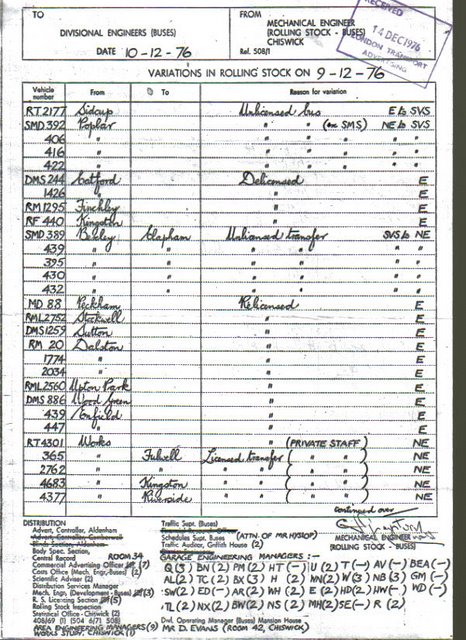 TO
DIVISIONAL ENGINEERS (BUSES)
DATE 10-12-76
FROM
MECHANICAL ENGINEER
(ROLLING STOCK - BUSES)
CHISWICK
Ref. 508/1
RECEIVED
14 DEC 1976
LONDON TRANSPORT
ADVERTISING
VARIATIONS IN ROLLING STOCK ON 9-12-76
Vehicle number From To Reason for variation
RT 2177 Sidcup Unlicensed bus E to SVS
SMD 392 Poplar " " (ex SMS) NE to SVS
406 " " " " " "
416 " " " " " "
422 " " " " " "
DMS 244 Catford Delicensed E
1426 " " E
RM 1295 Finchley " E
RF 440 Kingston " E
SMD 389 Bexley Clapham Unlicensed transfer SVS to NE
439 " " " " "
395 " " " " "
430 " " " " "
432 " " " " "
MD 88 Peckham Relicensed E
RML 2752 Stockwell " E
DMS 1259 Sutton " E
RM 20 Dalston " E
1774 " " E
2034 " " E
RML 2560 Upton Park " E
DMS 886 Wood Green " E
439 Enfield " E
447 " " E
RT 4301 Works " (PRIVATE STAFF) NE
365 " Fulwell Licensed transfer ( " " ) NE
2762 " " " ( " " ) NE
4683 " Kingston " ( " " ) NE
4377 " Riverside " ( " " ) NE
continued over
MECHANICAL ENGINEER
(ROLLING STOCK - BUSES)
DISTRIBUTION
Advert. Controller, Aldenham
Advert. Controller, Camberwell
Body Spec. Section,
Central Record ROOM 34
Commercial Advertising Officer (7)
Costs Office (Mech. Engr.-Buses) (2)
Scientific Adviser (2)
Distribution Services Manager
Mech. Eng. (Development - Buses) (3)
R. S. Licensing Section (5)
Rolling Stock Inspection
Statistical Office - Chiswick (2)
408/69 (1) (504 6/7) 508)
AREA ENGINEERING MANAGERS (9)
WORKS STUDY, CHISWICK (1)
Traffic Supt. (Buses)
Schedules Supt. (Buses) (ATTN. OF MR HYSLOP)
Traffic Auditor, Griffith House (2)
GARAGE ENGINEERING MANAGERS :-
Q (3) BN (2) PM (2) HT (-) U (2) T (-) AV (-) BEA (-)
AL (2) TC (2) BX (3) H (2) WN (2) W (3) NB (3) GM (-)
SW (2) ED (-) AR (2) WH (2) E (2) HD (2) HW (-) WD (-)
TL (2) NX (2) BW (2) NS (2) MH (2) SE (-) R (2)
Divl. Operating Manager (Buses) Mansion House
MR D. EVANS (ROOM 42, CHISWICK)